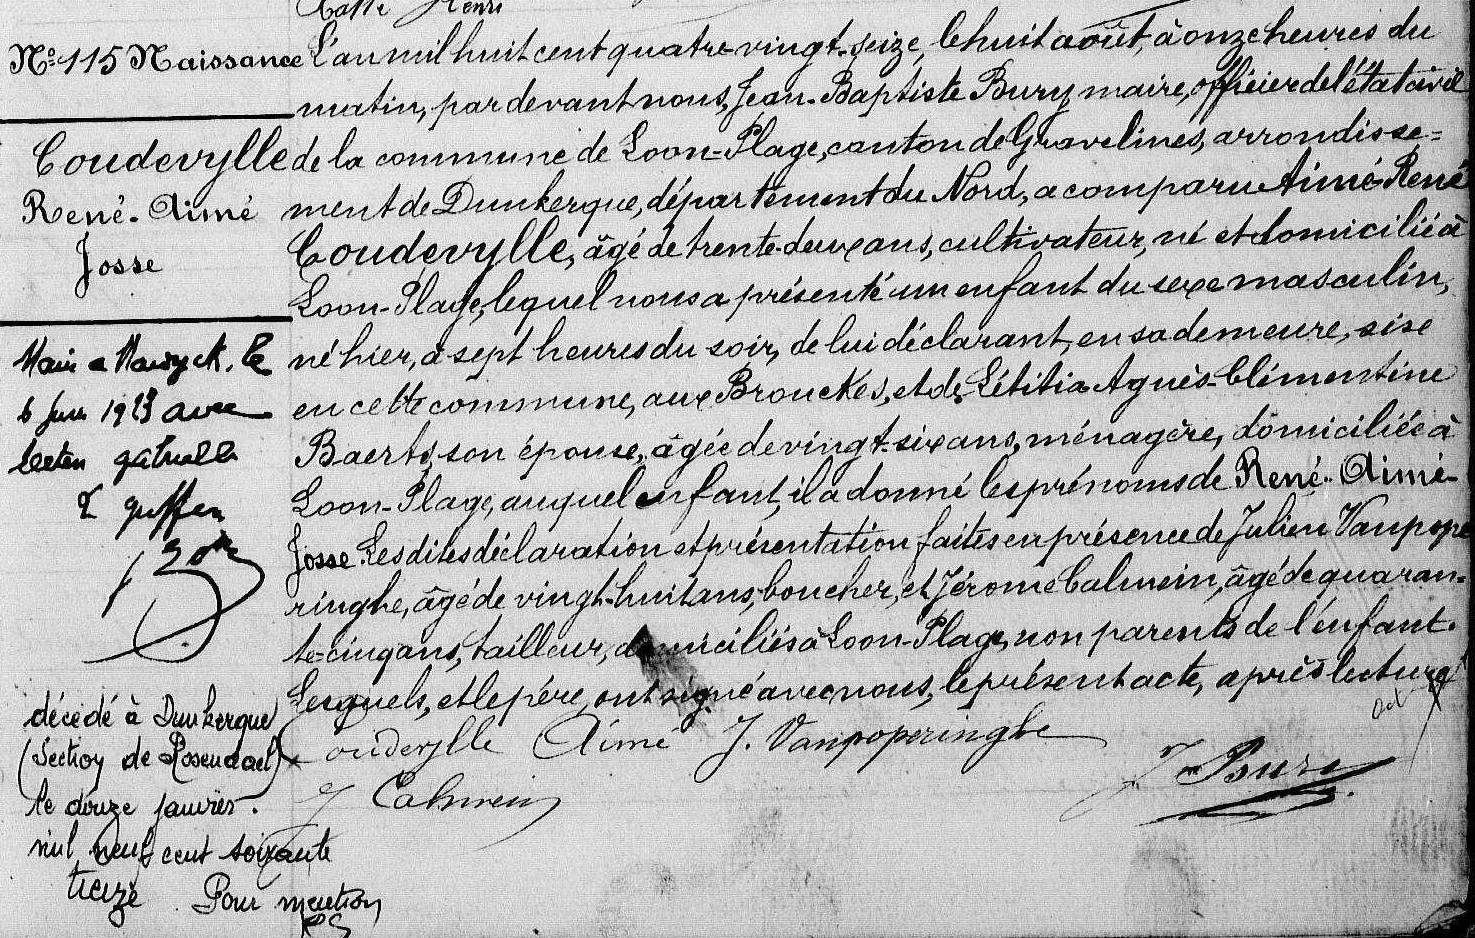 Henri
N° 115 Naissance
Coudevylle
René-Aimé
Josse
L'an mil huit cent quatre-vingt-seize, le huit août, à onze heures du
matin, par devant nous, Jean-Baptiste Bury, maire, officier de l'état civil
de la commune de Loon-Plage, canton de Gravelines, arrondisse=
ment de Dunkerque, département du Nord, a comparu Aimé-René
Coudevylle, âgé de trente-deux ans, cultivateur, né et domicilié à
Loon-Plage, lequel nous a présenté un enfant du sexe masculin,
né hier, à sept heures du soir, de lui déclarant, en sa demeure, sise
en cette commune, aux Brouckes, et de Létitia-Agnès-Clémentine
Baerts, son épouse, âgée de vingt-six ans, ménagère, domiciliée à
Loon-Plage, auquel enfant, il a donné les prénoms de René-Aimé-
Josse. Lesdites déclaration et présentation faites en présence de Julien Vanpope
ringhe, âgé de vingt-huit ans, boucher, et Jérome Calmein, âgé de quaran-
te-cinq ans, tailleur, domiciliés à Loon-Plage, non parents de l'enfant.
Lesquels, et le père, ont signé avec nous, le présent acte, après lecture
Coudevylle Aimé J. Vanpoperinghe
J Calmein
J Bury
le
6 1923 avec
décédé à Dunkerque
(Section de Rosendael)
le douze janvier
mil neuf cent soixante
treize Pour mention